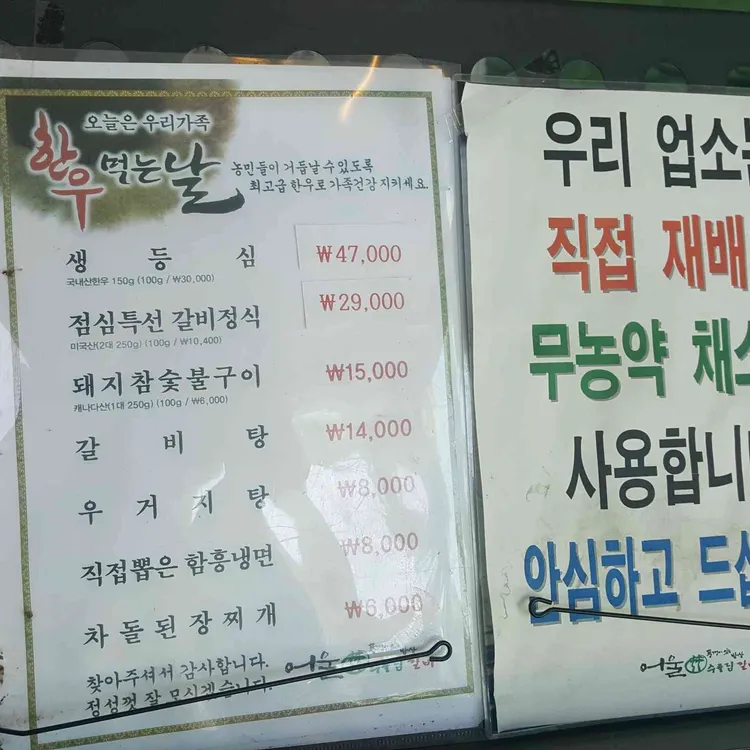 오늘은 우리가족
한우 먹는 날
농민들이 거듭날 수 있도록
최고급 한우로 가족건강 지키세요
생 등 심 ₩47,000
국내산한우 150g (100g / ₩30,000)
점심특선 갈비정식 ₩29,000
미국산(2대 250g) (100g / ₩10,400)
돼지참숯불구이 ₩15,000
캐나다산(1대 250g) (100g / ₩6,000)
갈 비 탕 ₩14,000
우 거 지 탕 ₩8,000
직접뽑은 함흥냉면 ₩8,000
차 돌 된 장 찌 개 ₩6,000
찾아주셔서 감사합니다.
정성껏 잘 모시겠습니다.
어울
우리 업소
직접 재배
무농약 채소
사용합니
안심하고 드십
어울